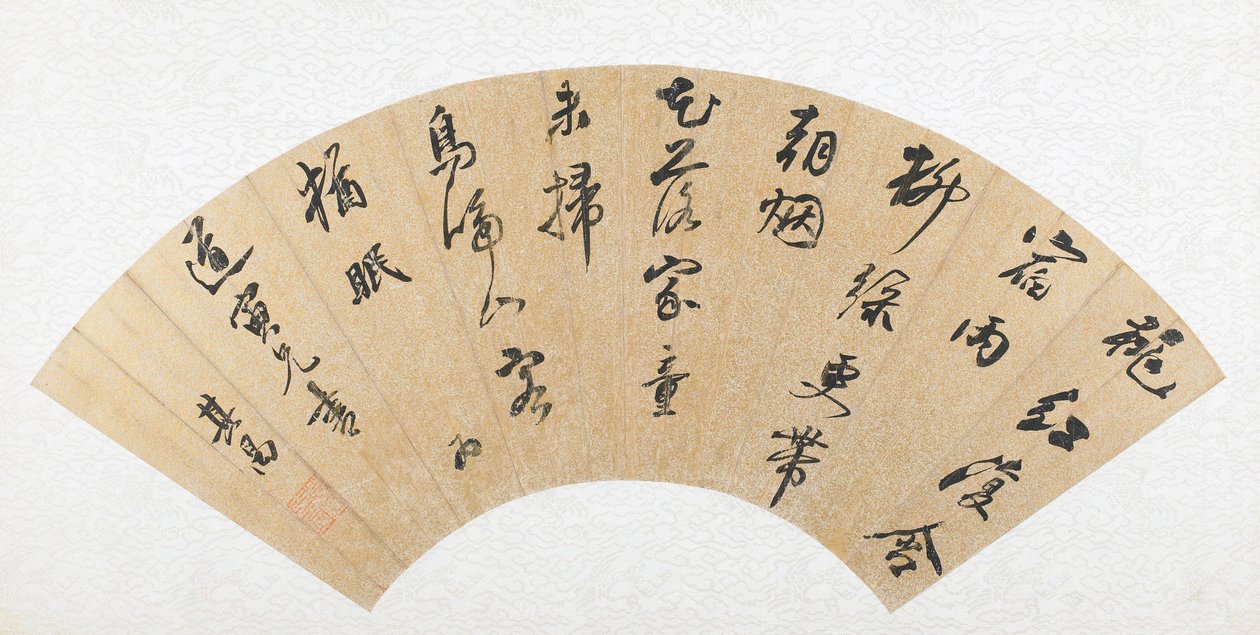 桃紅復含
宿雨
柳綠更帶
朝烟
花落家童
未掃
鳥啼山客
猶眠 為
道兄書
其昌